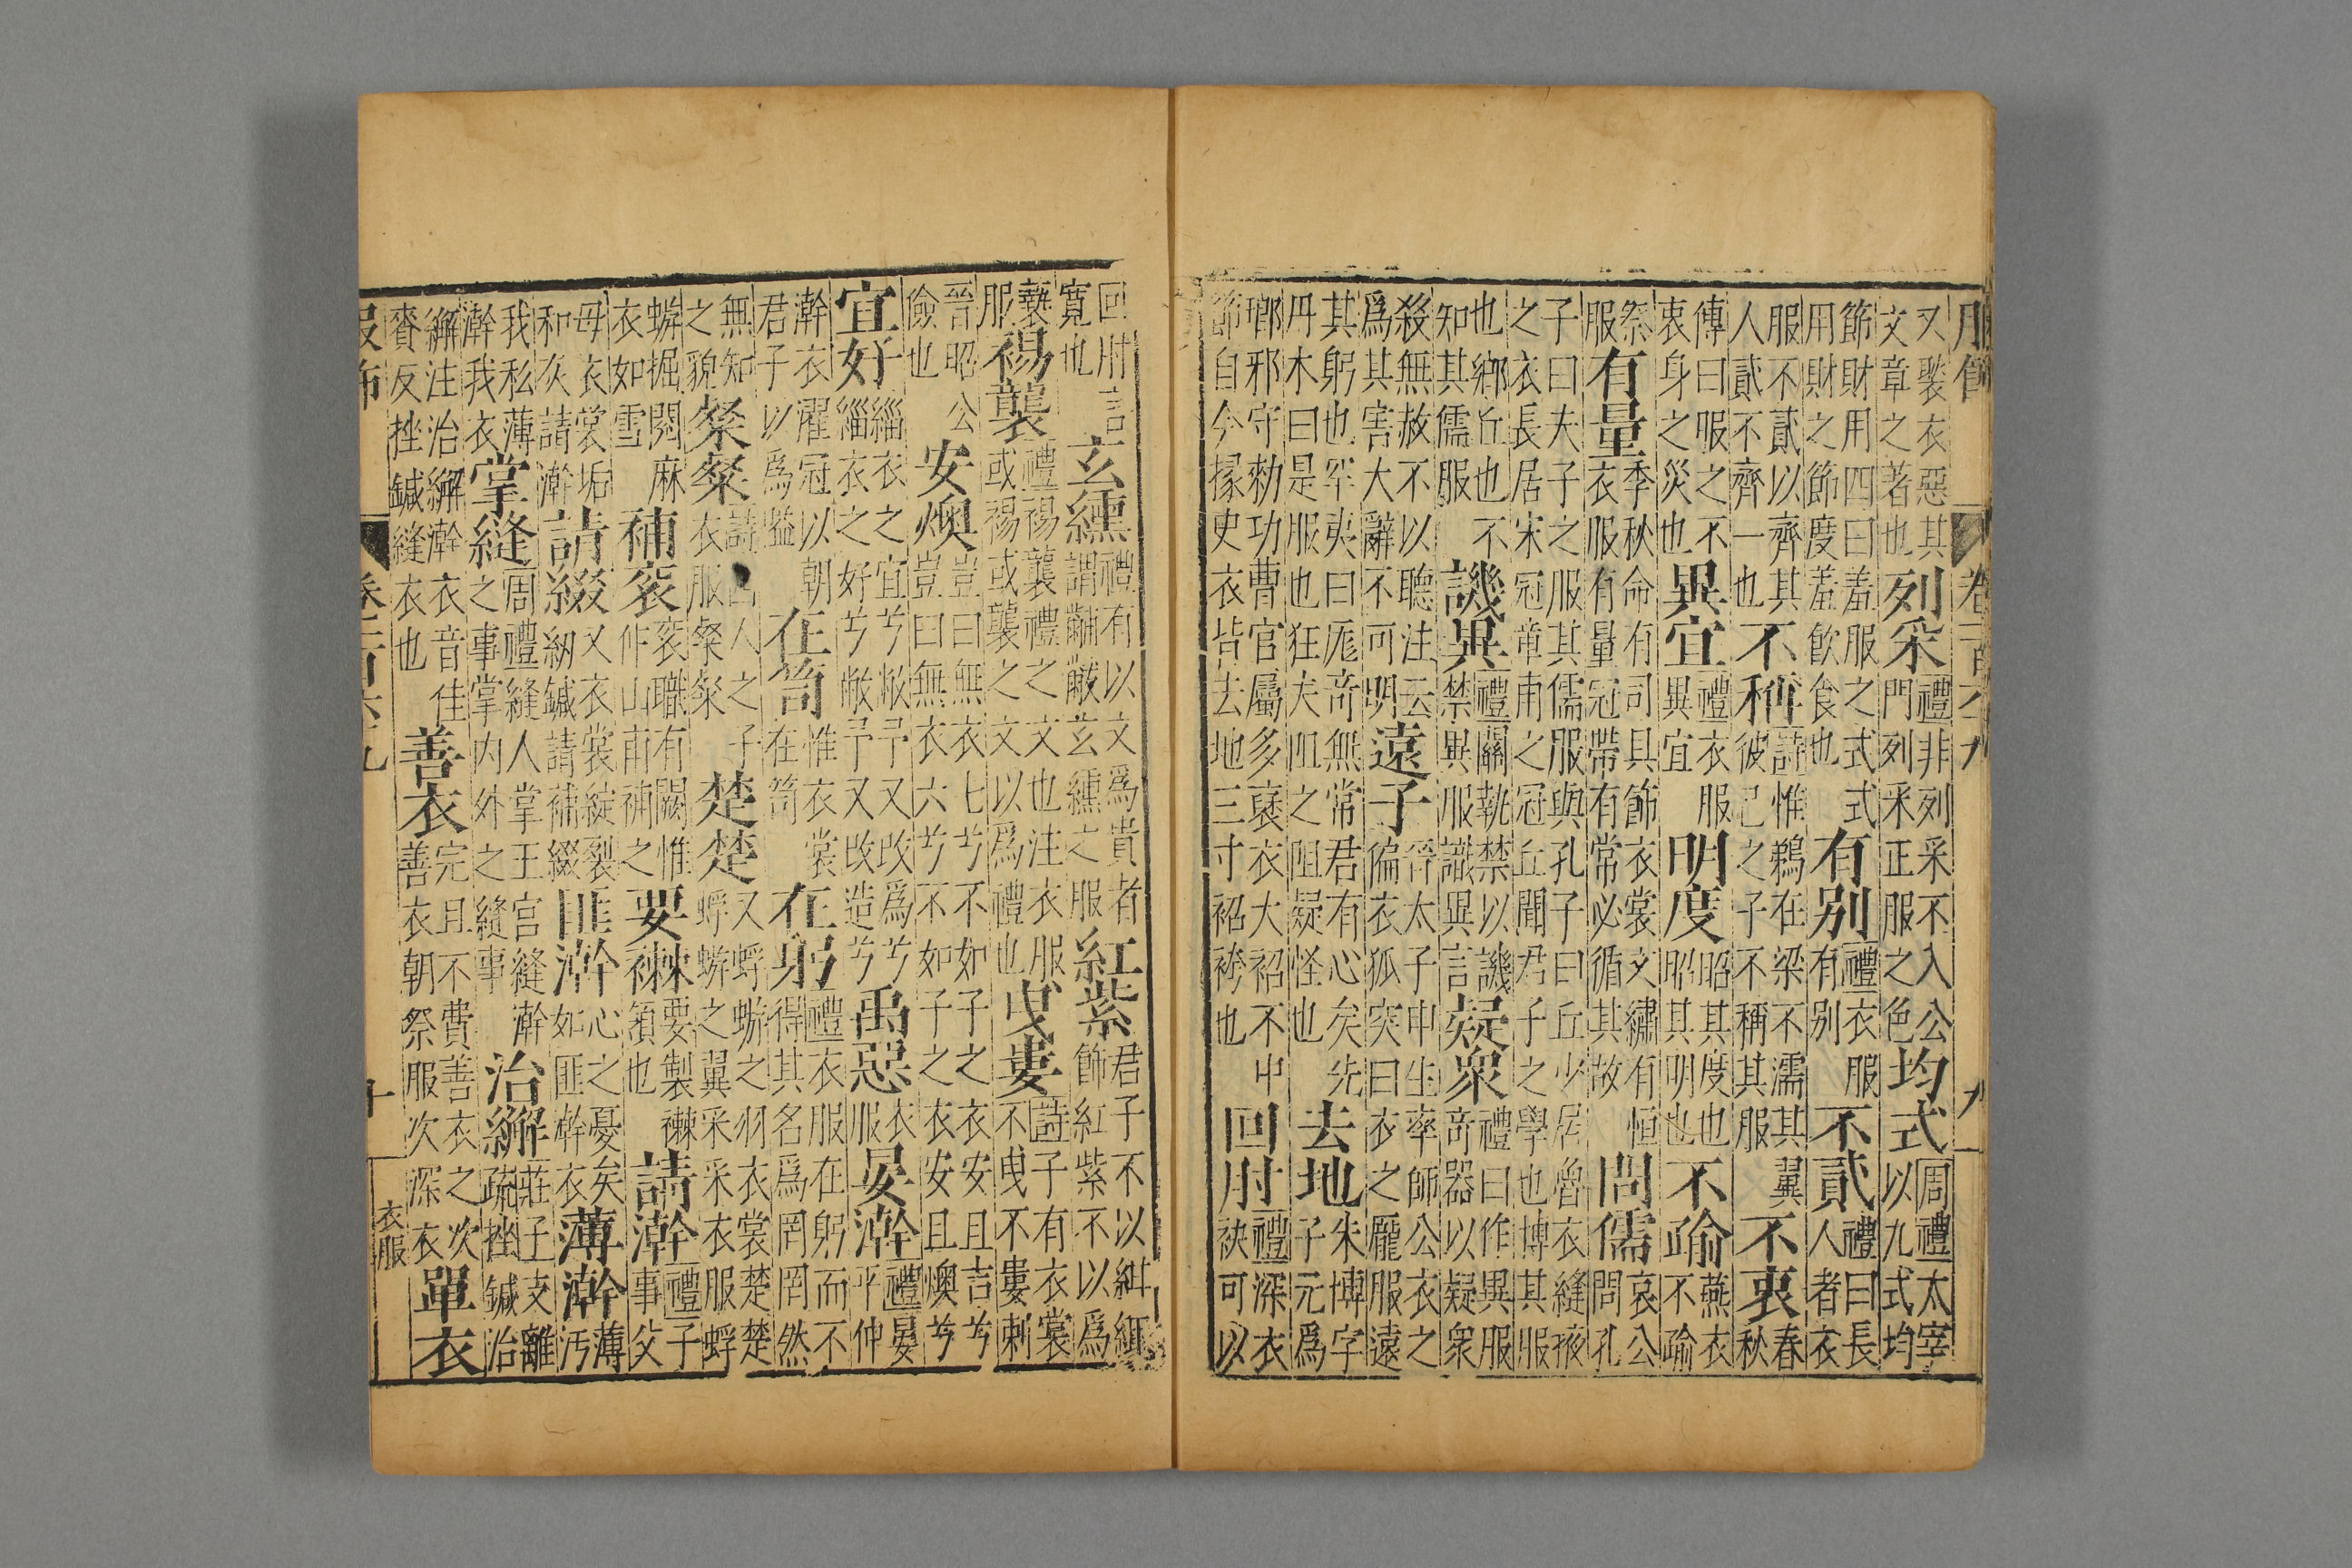 又褧衣惡其文章之著也列采禮非列采不入公門列采正服之色均式周禮太宰以九式均
節財用四曰羞服之式式用財之節度羞飲食也有別禮衣服有別不貳禮曰長人者衣
服不貳以齊其人貳不齊一也不稱詩惟鵜在梁不濡其翼彼己之子不稱其服不衷春秋
傳曰服之不衷身之災也異宜禮衣服異宜明度昭其度也昭其明也不踰燕衣不踰
祭服有量季秋命有司具飭衣裳文繡有恒衣服有量冠帶有常必循其故問儒哀公問孔
子曰夫子之服其儒服與孔子曰丘少居魯衣縫掖之衣長居宋冠章甫之冠丘聞君子之學也博其服
也鄉丘也不知其儒服譏異禮關執禁以譏禁異服識異言疑衆禮曰作異服奇器以疑衆
殺無赦不以聽注云爲其害大辭不可明遠子晉太子申生率師公衣之偏衣狐突曰衣之尨服遠
其躬也罕夷曰尨奇無常君有心矣先丹木曰是服也狂夫阻之阻疑怪也去地朱博字子元爲
瑯邪守勑功曹官屬多襃衣大袑不中節自今掾史衣皆去地三寸袑袴也回肘禮深衣袂可以
回肘言寬也玄纁禮有以文爲貴者謂黼黻玄纁之服紅紫君子不以紺緅飾紅紫不以爲
褻服裼襲禮裼襲禮之文也注衣服或裼或襲之文以爲禮也曳婁詩子有衣裳不曳不婁刺
晉昭公儉也安燠豈曰無衣七兮不如子之衣安且吉兮豈曰無衣六兮不如子之衣安且燠兮
宜好緇衣之宜兮敝予又改爲兮緇衣之好兮敝予又改造兮禹惡衣服晏澣禮晏平仲
澣衣濯冠以朝君子以爲隘在笥惟衣裳在笥在躬禮衣服在躬而不得其名爲罔罔然
無知之貌粲粲詩西人之子衣服粲粲楚楚又蜉蝣之羽衣裳楚楚蜉蝣之翼采采衣服蜉
蝣掘閱麻衣如雪補衮衮職有闕惟仲山甫補之要襋要製襋領也請澣禮子事父
母衣裳垢和灰請澣請綴又衣裳綻裂紉鍼請補綴匪澣心之憂矣如匪澣衣薄澣薄汚
我私薄澣我衣掌縫周禮縫人掌王宮縫澣之事掌内外之縫事治繲莊子支離疏挫鍼治
繲注治繲澣衣音佳賚反挫鍼縫衣也善衣完且不費善衣之次善衣朝祭服次深衣單衣
服飾 卷一百六十九 十 衣服